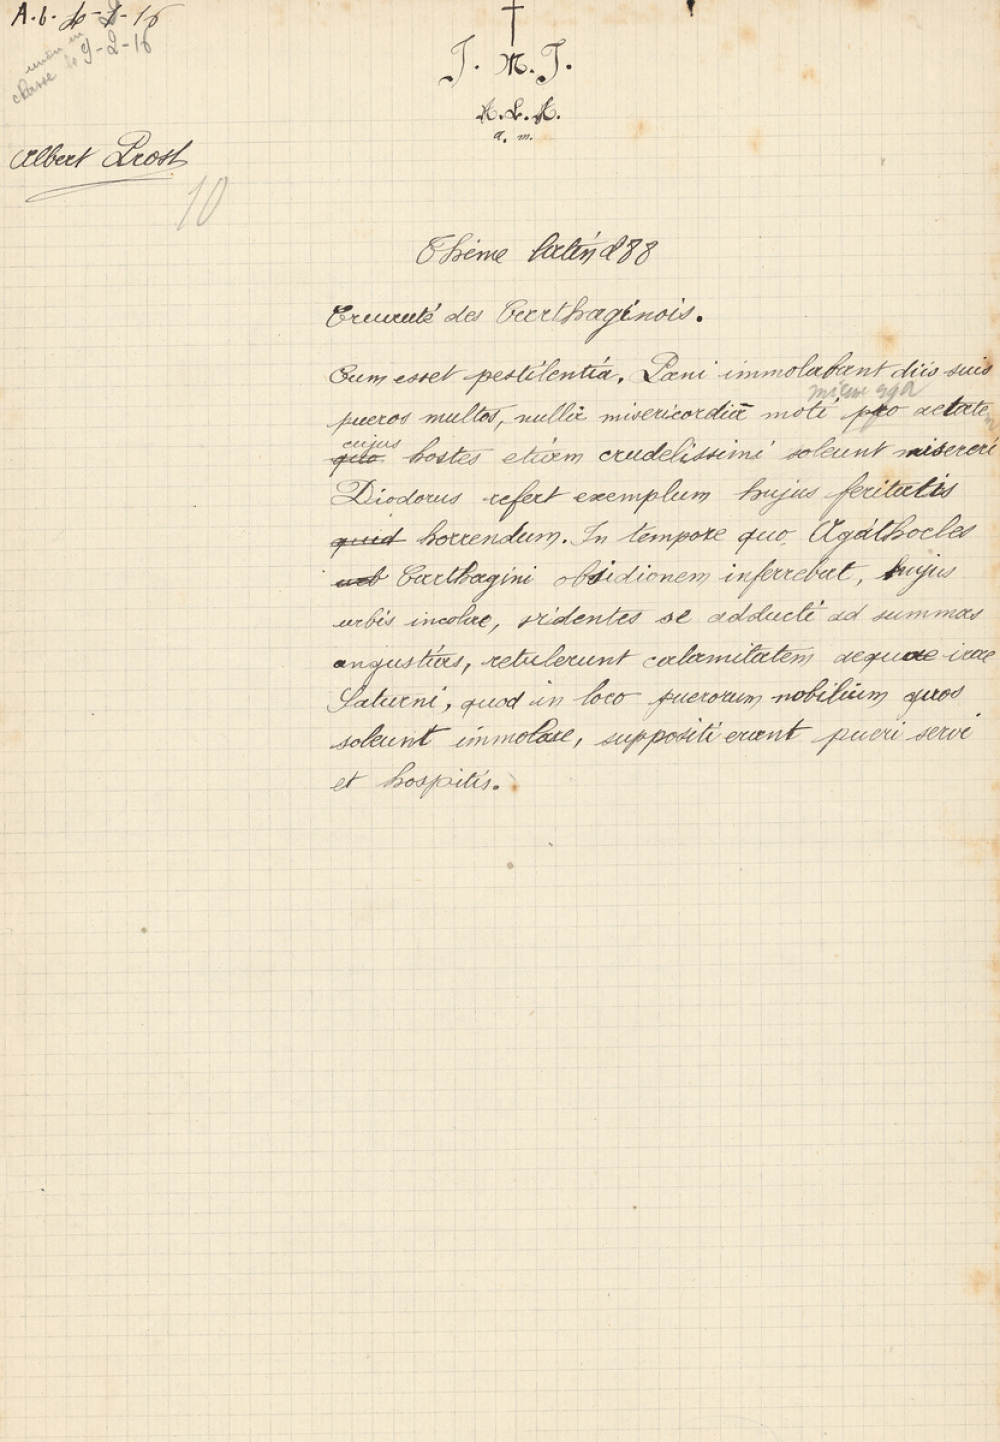 A.b. 4-2-16
classe le 9-2-16
J. M. J.
A. L. A.
a. m.
Albert Prost
10
Thème latin 288
Cruauté des Carthaginois.
Cum esset pestilentia, Pæni immolabant diis suis
mieux erga
pueros multos, nulla misericordiâ moti pro aetate
cujus
quo hostes etiam crudelissimi soleunt misereri
Diodorus refert exemplum hujus feritatis
quid horrendum. In tempore quo Agathocles
urb Carthagini obsidionem inferrebat, hujus
urbis incolae, videntes se adducti ad summas
angustias, retulerunt calamitatem aequae irae
Saturni, quod in loco puerorum nobilium quos
soleunt immolare, suppositi erant pueri servi
et hospitis.